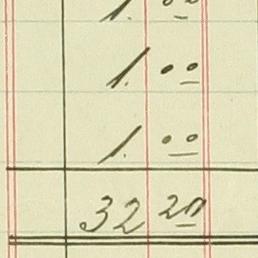 1. 00
1. 00
1. 00
32 20